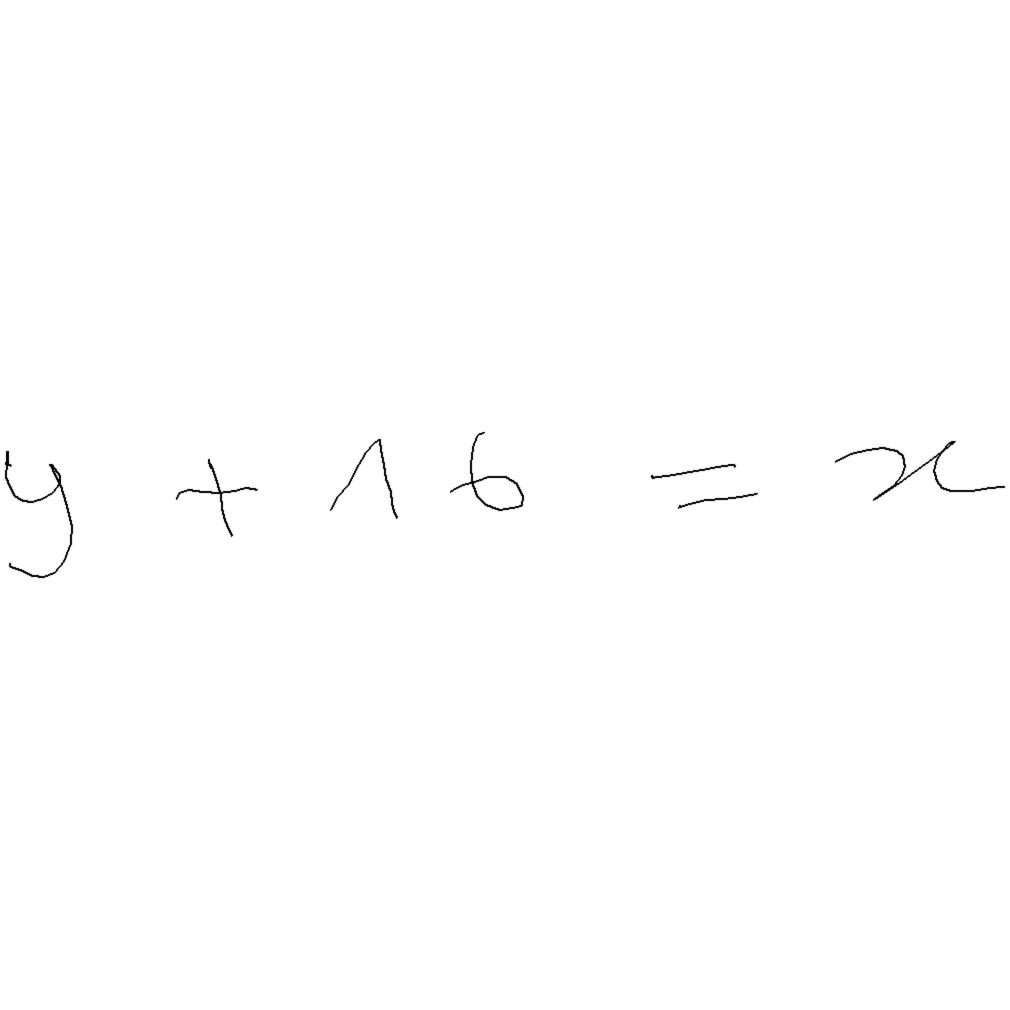 y + 16 = x